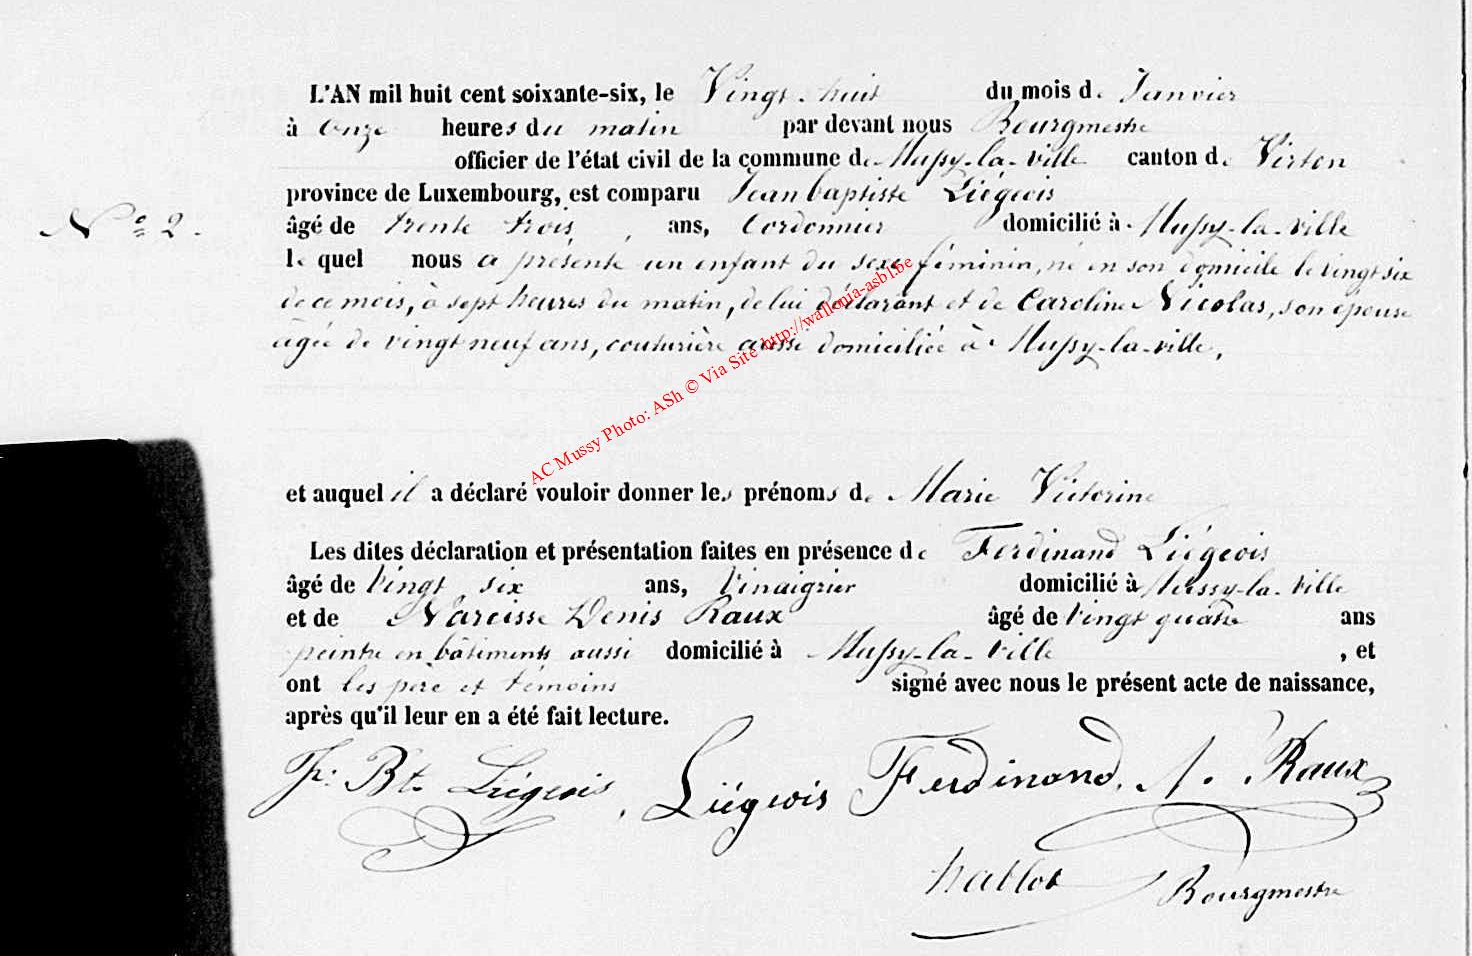 L'AN mil huit cent soixante-six, le Vingt-huit du mois de Janvier
à Onze heures du matin par devant nous Bourgmestre
officier de l'état civil de la commune de Mussy-la-ville canton de Virton
province de Luxembourg, est comparu Jean baptiste Liégeois
N° 2.
âgé de trente trois, ans, Cordonnier domicilié à Mussy-la-ville
le quel nous a présenté un enfant du sexe féminin, né en son domicile le vingt six
de ce mois, à sept heures du matin, de lui déclarant et de Caroline Nicolas, son épouse
âgée de vingt neuf ans, couturière aussi domiciliée à Mussy-la-ville,
AC Mussy Photo: ASh © Via Site http://wallonia-asbl.be
et auquel il a déclaré vouloir donner les prénoms de Marie Victorine
Les dites déclaration et présentation faites en présence de Ferdinand Liégeois
âgé de Vingt six ans, Vinaigrier domicilié à Mussy-la-Ville
et de Narcisse Denis Raux âgé de Vingt quatre ans
peintre en bâtiments aussi domicilié à Mussy-la-Ville, et
ont les père et témoins signé avec nous le présent acte de naissance,
après qu'il leur en a été fait lecture.
Bte Liégeois, Liégeois Ferdinand. N. Raux
Bourgmestre